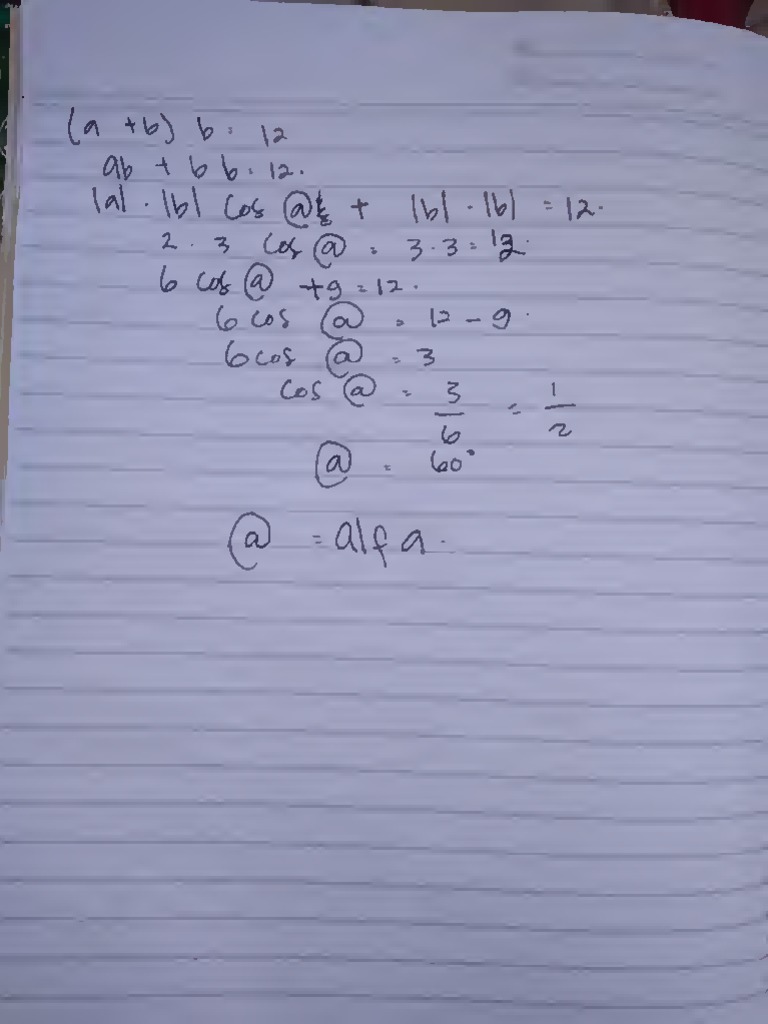 (a + b) b = 12
ab + b b = 12.
|a| . |b| cos @ + |b| . |b| = 12.
2 . 3 cos @ = 3.3 = 12.
6 cos @ +9 = 12.
6 cos @ = 12 - 9.
6 cos @ = 3
cos @ = 3/6 = 1/2
@ = 60°
@ = alfa.